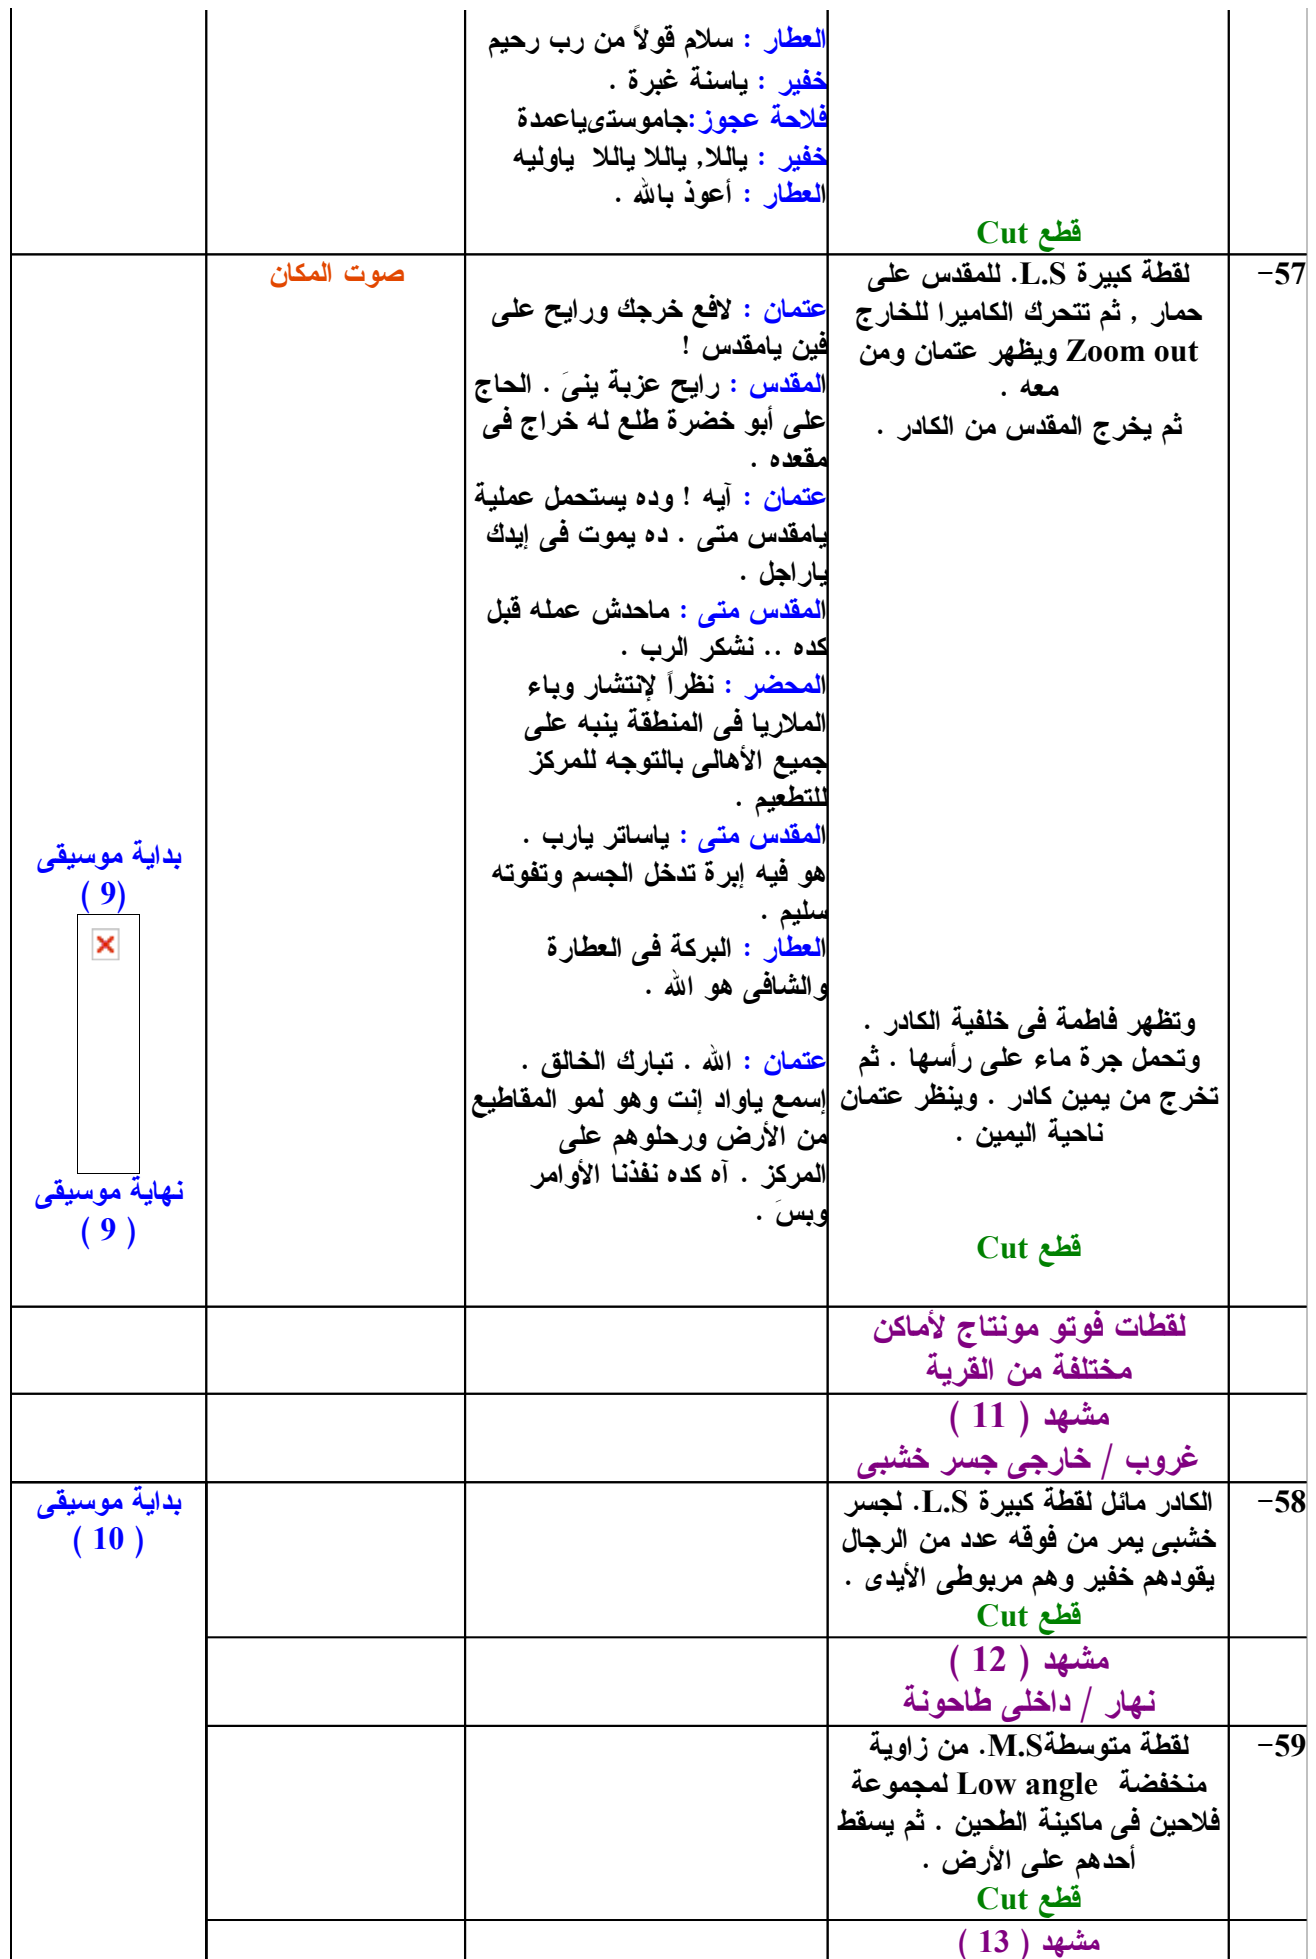 العطار : سلام قولاً من رب رحيم
خفير : ياسنة غبرة .
فلاحة عجوز:جاموستىياعمدة
خفير : ياللا, ياللا ياللا ياوليه
العطار : أعوذ بالله .
قطع Cut
57-
لقطة كبيرة L.S. للمقدس على
حمار , ثم تتحرك الكاميرا للخارج
Zoom out ويظهر عتمان ومن
معه .
ثم يخرج المقدس من الكادر .
وتظهر فاطمة فى خلفية الكادر .
وتحمل جرة ماء على رأسها . ثم
تخرج من يمين كادر . وينظر عتمان
ناحية اليمين .
قطع Cut
عتمان : لافع خرجك ورايح على
فين يامقدس !
المقدس : رايح عزبة ينىَ . الحاج
على أبو خضرة طلع له خراج فى
مقعده .
عتمان : آيه ! وده يستحمل عملية
يامقدس متى . ده يموت فى إيدك
ياراجل .
المقدس متى : ماحدش عمله قبل
كده .. نشكر الرب .
المحضر : نظراً لإنتشار وباء
الملاريا فى المنطقة ينبه على
جميع الأهالى بالتوجه للمركز
للتطعيم .
المقدس متى : ياساتر يارب .
هو فيه إبرة تدخل الجسم وتفوته
سليم .
العطار : البركة فى العطارة
والشافى هو الله .
عتمان : الله . تبارك الخالق .
إسمع ياواد إنت وهو لمو المقاطيع
من الأرض ورحلوهم على
المركز . آه كده نفذنا الأوامر
وبسَ .
صوت المكان
بداية موسيقى
( 9)
نهاية موسيقى
( 9 )
لقطات فوتو مونتاج لأماكن
مختلفة من القرية
مشهد ( 11 )
غروب / خارجى جسر خشبى
58-
الكادر مائل لقطة كبيرة L.S. لجسر
خشبى يمر من فوقه عدد من الرجال
يقودهم خفير وهم مربوطى الأيدى .
قطع Cut
بداية موسيقى
( 10 )
مشهد ( 12 )
نهار / داخلى طاحونة
59-
لقطة متوسطةM.S. من زاوية
منخفضة Low angle لمجموعة
فلاحين فى ماكينة الطحين . ثم يسقط
أحدهم على الأرض .
قطع Cut
مشهد ( 13 )